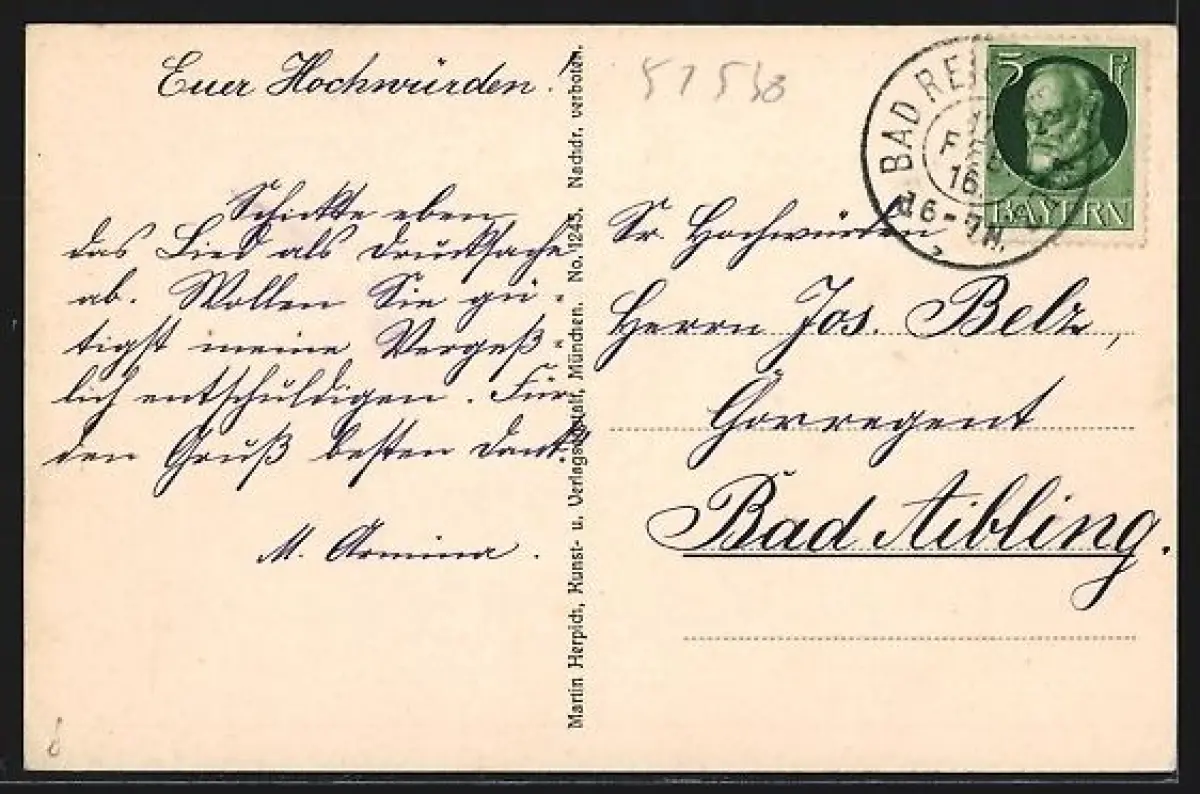 Euer Hochwürden!
Schickte eben
das Lied als Drucksache
ab. Wollen Sie gü-
tigst meine Vergeß-
lich entschuldigen. Für
den Gruß besten Dank!
M. Armina.
Martin Herpich, Kunst- u. Verlagsanstalt, München. No. 1243. Nachdr. verboten.
57538
BAD REI
F
16
6-7N.
5 Pf
BAYERN
Sr. Hochwürden
Herrn Jos. Belz,
Chorregent
Bad Aibling.